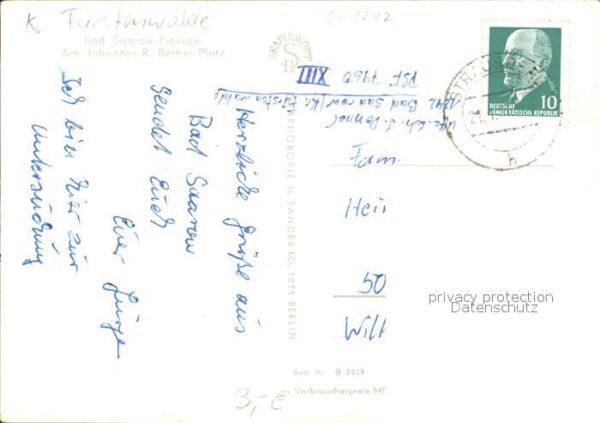 K. Fürstenwalde
0-1242
Bad Saarow-Pieskow
Am Johannes-R.-Becher-Platz
Herzliche Grüße aus
Bad Saarow
sendet Euch
Euer Jürgen
Ich bin hier zur
Untersuchung
1242 Bad Saarow (Kr. Fürstenwalde)
PSF 7960
XIII
Fam.
H. SANDER KG, 1071 BERLIN
STRAUSBERG
h
DEUTSCHE
DEMOKRATISCHE REPUBLIK
10
privacy protection
Datenschutz
Best. Nr. B 2429
Verbraucherpreis MDN
3,- €